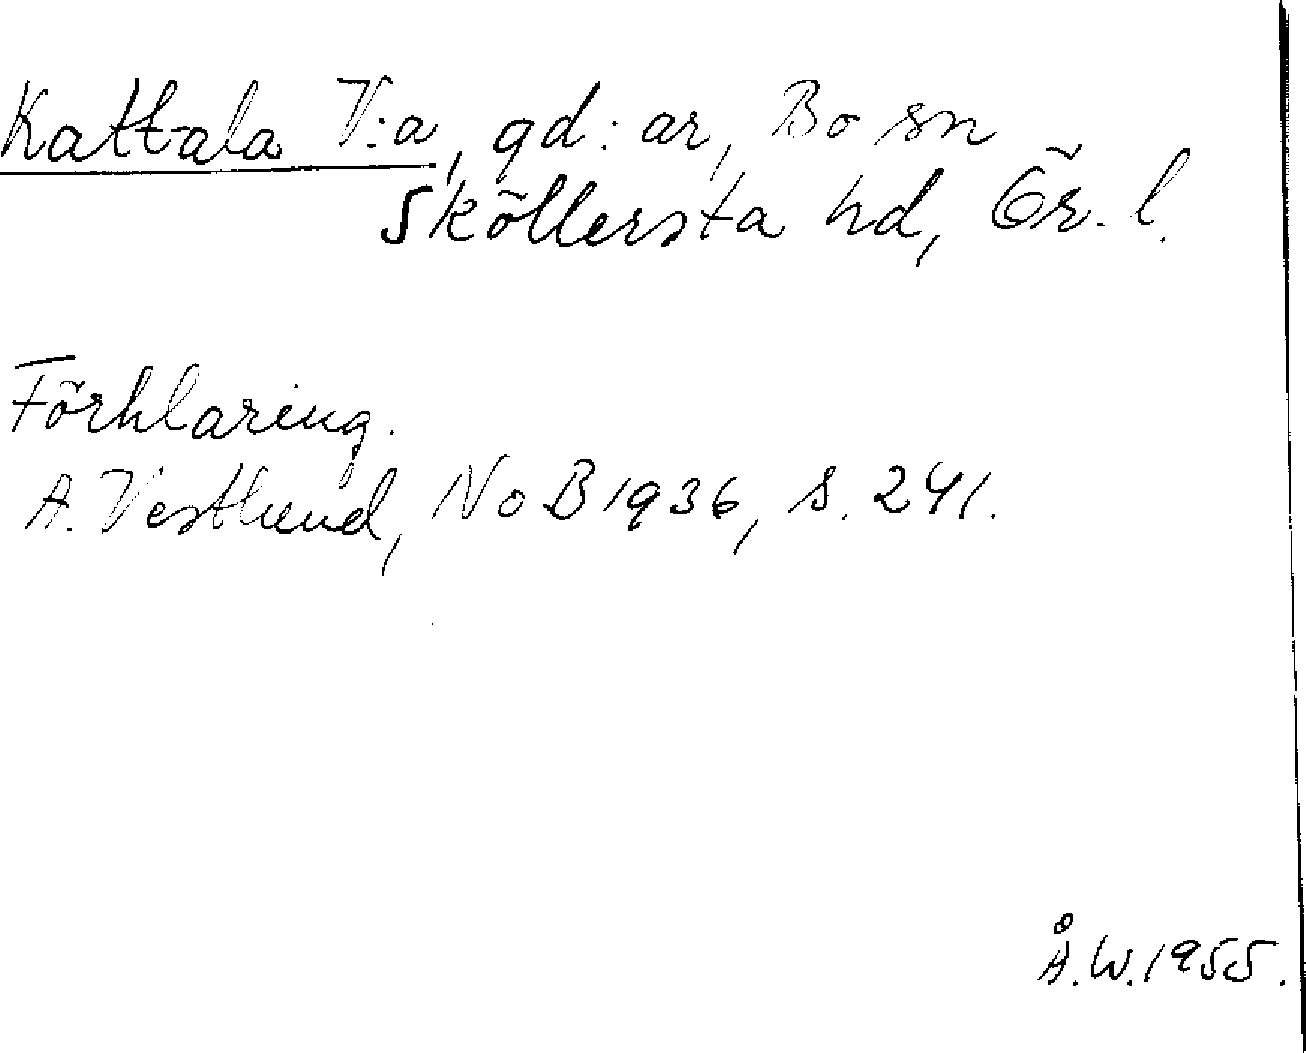 Kattala V:a, gd:ar, Bo sn
Sköllersta hd, Ör. l.
Förklaring.
A. Vestlund, NoB 1936, s. 241.
Å.W. 1955.